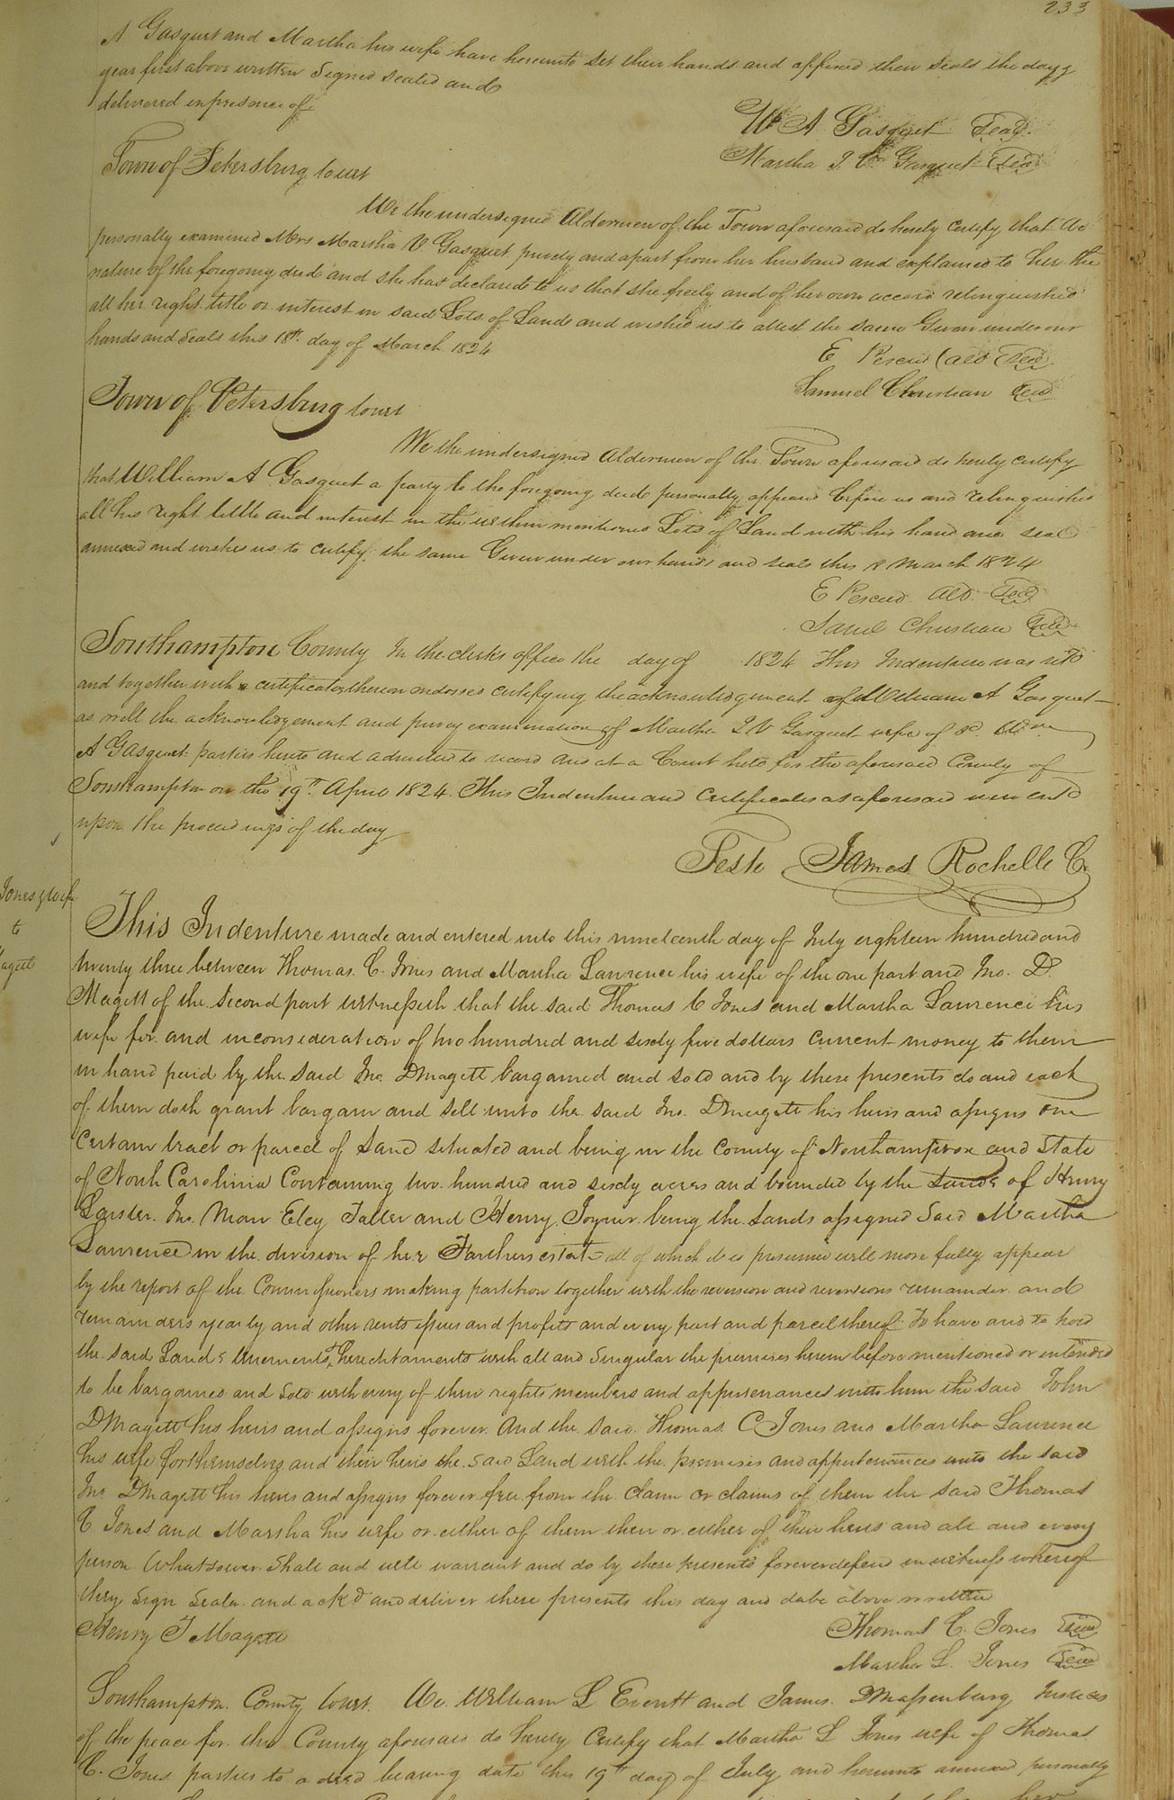 233
A Gasquet and Martha his wife have hereunto set their hands and affixed their seals the day &
year first above written Signed sealed and
delivered in presence of
W A Gasquet Seal
Martha J V Gasquet Seal
Town of Petersburg towit
We the undersigned Aldermen of the Town aforesaid do hereby certify that we
personally examined Mrs Martha V Gasquet privily and apart from her husband and explained to her the
nature of the foregoing deed and she has declared to us that she freely and of her own accord relinquished
all her right title or interest in said Lots of Lands and wishes us to attest the same Given under our
hands and seals this 18th day of March 1824
E Pescud Ald Seal
Samuel Christian Seal
Town of Petersburg towit
We the undersigned Aldermen of the Town aforesaid do hereby certify
that William A Gasquet a party to the foregoing deed personally appeared before us and relinquishes
all his right tittle and interest in the within mentioned Lots of Land with his hand and seal
annexed and wishes us to certify the same Given under our hands and seals this March 1824
E Pescud Ald. Seal
Saml Christian Seal
Southampton County In the clerks office the day of 1824 This Indenture was
and together with certificates thereon endorsed certifying the acknowledgement of William A Gasquet
as well the acknowledgement and privy examination of Martha J V Gasquet wife of sd. Wm
A Gasquet parties hereto and admitted to record and at a Court held for the aforesaid County of
Southampton on the 19th April 1824. This Indenture and Certificates as aforesaid were entd
upon the proceedings of the day
Teste James Rochelle C.
Jones & wife
to
Magett
This Indenture made and entered into this nineteenth day of July eighteen hundred and
twenty three between Thomas C. Jones and Martha Lawrence his wife of the one part and Jno. D.
Magett of the second part witnesseth that the said Thomas C Jones and Martha Lawrence his
wife for and in consideration of two hundred and sixty five dollars current money to them
in hand paid by the said Jno. D Magett bargained and sold and by these presents do and each
of them doth grant bargain and sell unto the said Jno. D Magett his heirs and assigns one
certain tract or parcel of Land situated and being in the County of Northampton and State
of North Carolinia Containing two hundred and sixty acres and bounded by the Lands of Henry
Jno. Moor Eley and Henry Joyner being the Lands assigned Said Martha
Lawrence in the division of her Farthers estate all of which it is presumed will more fully appear
by the report of the Commissioners making partition together with the reversion and reversions remainder and
remainders yearly and other rents issues and profits and every part and parcel thereof To have and to hold
the said Lands tenements & hereditaments with all and Singular the premises herein before mentioned or intended
to be bargained and Sold with every of their rights members and appurtenances unto him the said John
D Magett his heirs and assigns forever. And the said Thomas C Jones and Martha Lawrence
his wife for themselves and their heirs the said Land with the premises and appurtenances unto the said
Jno D Magett his heirs and assigns forever free from the claim or claims of them the said Thomas
C Jones and Martha his wife or either of them their or either of their heirs and all and every
person Whatsoever Shall and will warrant and do by these presents forever defend in witness whereof
they Sign Seale and ackd and deliver these presents this day and date above written
Henry T Magett
Thomas C. Jones Seal
Martha L. Jones Seal
Southampton County towit. We William L Everett and James D Massenburg Justices
of the peace for the County aforesaid do hereby Certify that Martha L Jones wife of Thomas
C. Jones parties to a deed bearing date this 19th day of July and hereunto annexed personally